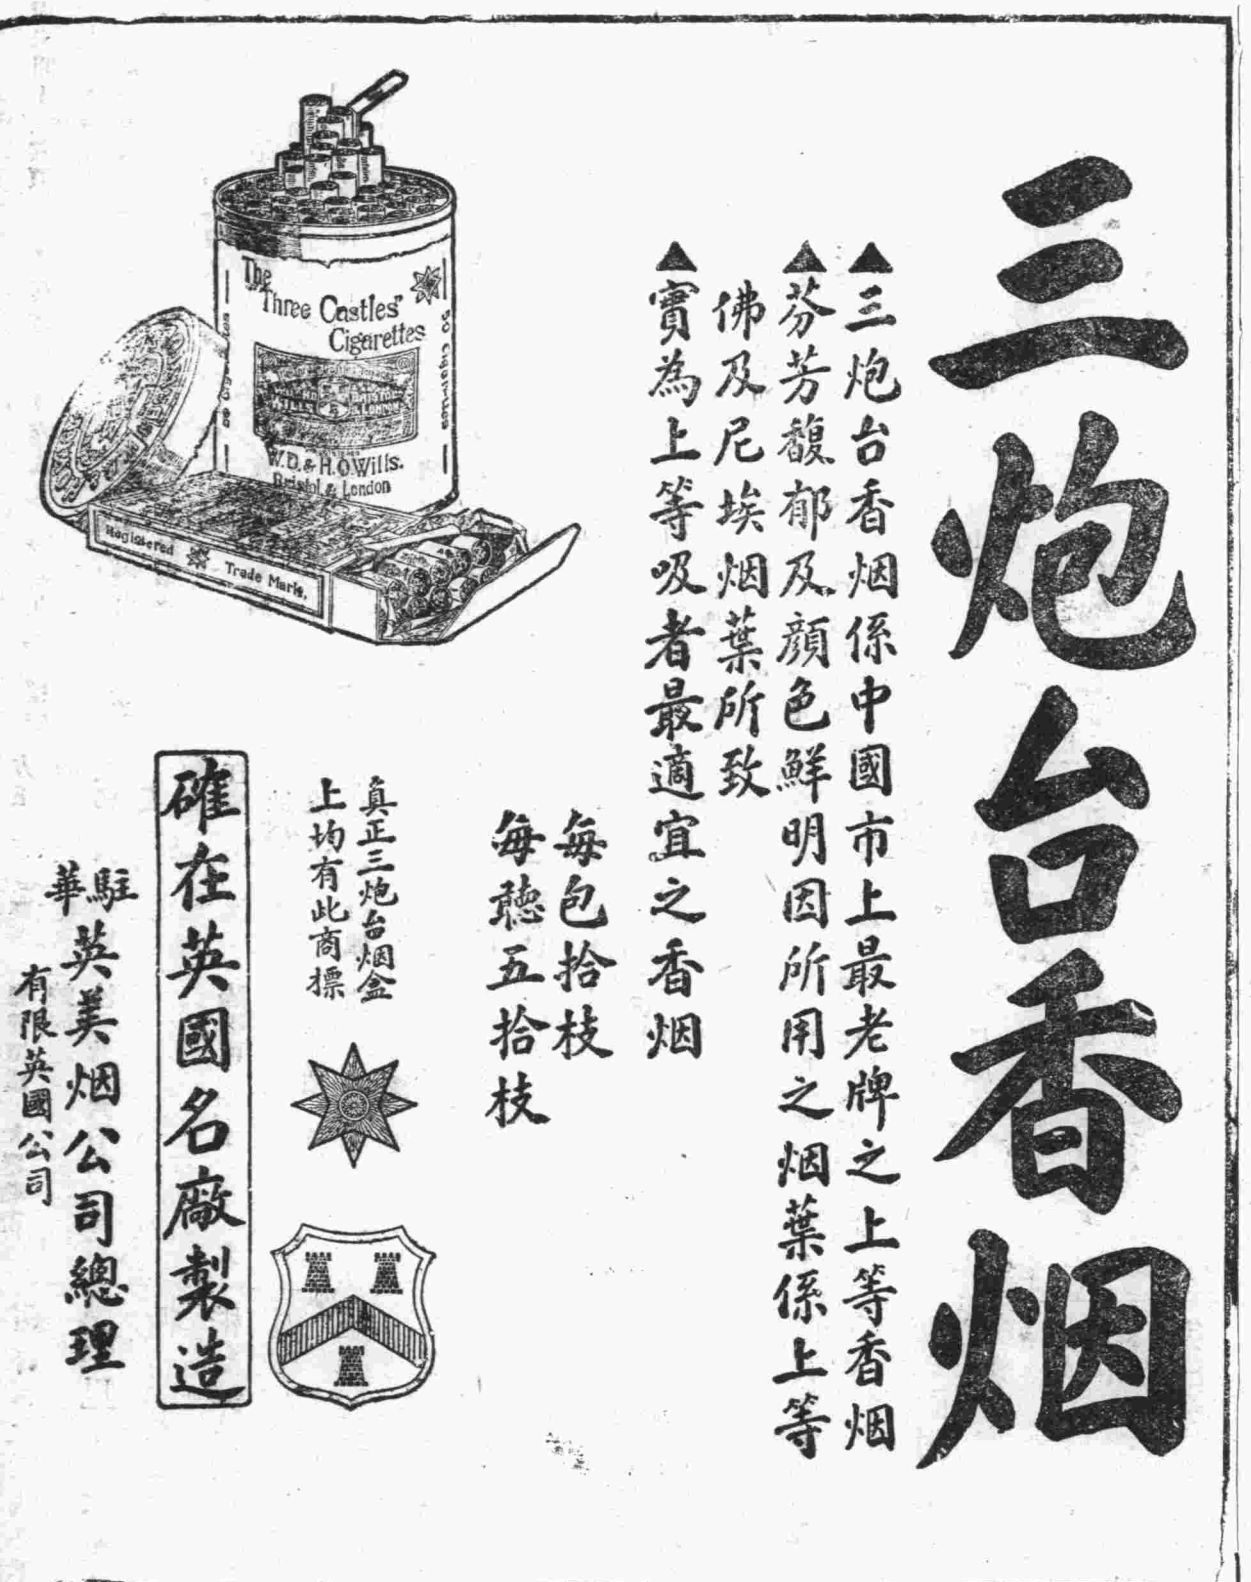 三炮台香烟
▲三炮台香烟係中國市上最老牌之上等香烟
▲芬芳馥郁及顏色鮮明因所用之烟葉係上等
佛及尼埃烟葉所致
▲實為上等吸者最適宜之香烟
每包拾枝
每聽五拾枝
The
"Three Castles"
Cigarettes
50 Cigarettes
WILLS
BRISTOL
& LONDON
W.D. & H.O. Wills.
Bristol & London
Registered Trade Mark.
真正三炮台烟盒
上均有此商標
確在英國名廠製造
駐華英美烟公司總理
有限英國公司